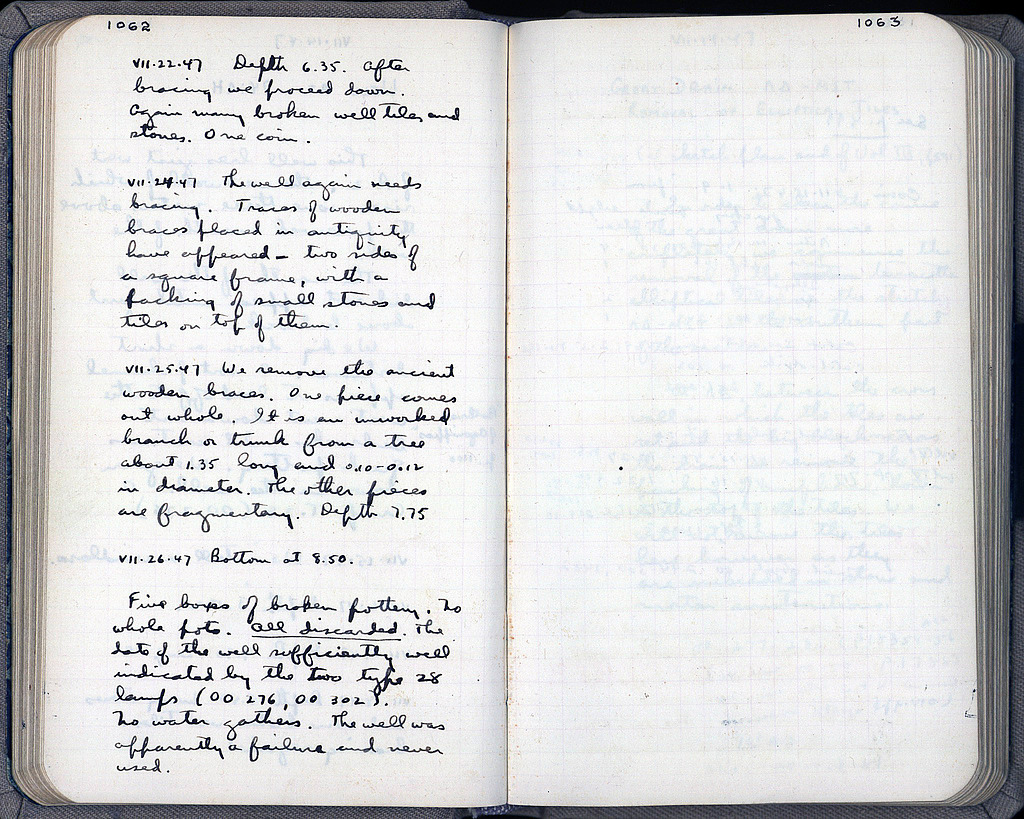 1062
VII.22.47 Depth 6.35. After
bracing we proceed down.
Again many broken well tiles and
stones. One coin.
VII.24.47 The well again needs
bracing. Traces of wooden
braces placed in antiquity
have appeared – two sides of
a square frame, with a
packing of small stones and
tiles on top of them.
VII.25.47 We remove the ancient
wooden braces. One piece comes
out whole. It is an unworked
branch or trunk from a tree
about 1.35 long and 0.10-0.12
in diameter. The other pieces
are fragmentary. Depth 7.75
VII.26.47 Bottom at 8.50.
Five boxes of broken pottery. No
whole pots. All discarded. The
date of the well sufficiently well
indicated by the two type 28
lamps (OO 276, OO 302).
No water gathers. The well was
apparently a failure and never
used.
1063